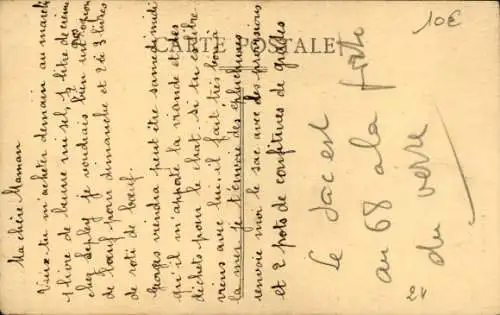 CARTE POSTALE
10€
Ma chère Maman
Veux-tu m'acheter demain au marché
1 livre de beurre mi sel, 1 litre de crème
chez Lepley je voudrais bien un rognon
de bœuf pour dimanche et 2 à 3 livres
de roti de bœuf.
Georges viendra peut être samedi midi
qu'il m'apporte la viande et des
déchets pour le chat. si tu es libre
viens avec lui. il fait très bon à
la mer je t'envoie des épluchures
renvoie moi le sac avec des provisions
et 2 pots de confitures de
Le sac est
au 68 a la porte
du verre